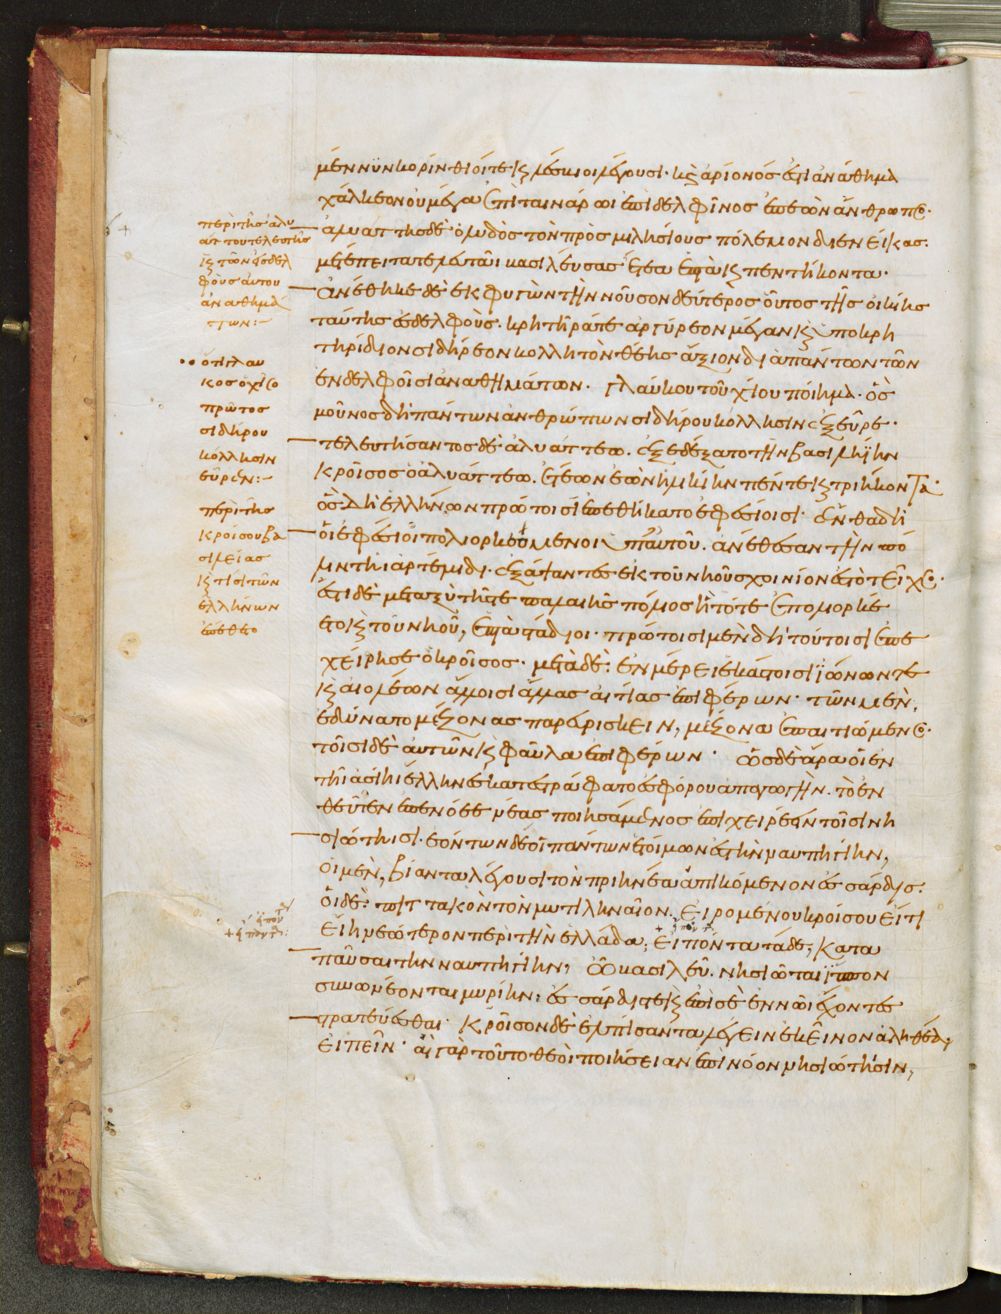 μέν νυν κορίνθιοί τε καὶ λέσβιοι λέγουσι· καὶ ἀρίονός ἐστι ἀνάθημα
χάλκεον οὐ μέγα ἐπὶ ταινάρωι ἐπὶ δελφῖνος ἐπεὼν ἄνθρωπος·
ἀλυάττης δὲ ὁ λυδὸς τὸν πρὸς μιλησίους πόλεμον διενείκας·
μετέπειτα τελευτᾶι βασιλεύσας ἔτεα ἑπτὰ καὶ πεντήκοντα·
ἀνέθηκε δὲ ἐκφυγὼν τὴν νοῦσον δεύτερος οὗτος τῆς οἰκίης
ταύτης ἐς δελφοὺς· κρητῆρά τε ἀργύρεον μέγαν καὶ ὑποκρη
τηρίδιον σιδήρεον κολλητὸν θέης ἄξιον διὰ πάντων τῶν
ἐν δελφοῖσι ἀναθημάτων· γλαύκου τοῦ χίου ποίημα· ὃς
μοῦνος δὴ πάντων ἀνθρώπων σιδήρου κόλλησιν ἐξεῦρε·
τελευτήσαντος δὲ ἀλυάττεω. ἐξεδέξατο τὴν βασιληίην
κροῖσος ὁ ἀλυάττεω. ἐτέων ἐὼν ἡλικίην πέντε καὶ τριήκοντα·
ὃς δὴ ἑλλήνων πρώτοισι ἐπεθήκατο ἐφεσίοισι· ἔνθα δὴ
οἱ ἐφέσιοι πολιορκεόμενοι ὑπ' αὐτοῦ. ἀνέθεσαν τὴν πό
λιν τῆι ἀρτέμιδι· ἐξάψαντες ἐκ τοῦ νηοῦ σχοινίον ἐς τὸ τεῖχος·
ἔστι δὲ μεταξὺ τῆς τε παλαιῆς πόλιος ἣ τότε ἐπολιορκέ
ετο καὶ τοῦ νηοῦ, ἑπτὰ στάδιοι· πρώτοισι μὲν δὴ τούτοισι ἐπε
χείρησε ὁ κροῖσος· μετὰ δὲ· ἐν μέρει ἑκάστοισι ἰώνων τε
καὶ αἰολέων ἄλλοισι ἄλλας αἰτίας ἐπιφέρων· τῶν μὲν,
ἐδύνατο μέζονας παρευρίσκειν, μέζονα ἐπαιτιώμενος·
τοῖσι δὲ αὐτῶν καὶ φαῦλα ἐπιφέρων· ὡς δὲ ἄρα οἱ ἐν
τῆι ἀσίηι ἕλληνες κατεστράφατο ἐς φόρου ἀπαγωγὴν. τὸ ἐν
θεῦτεν ἐπενόεε νέας ποιησάμενος ἐπιχειρέειν τοῖσι νη
σιώτηισι. ἐόντων δέ οἱ πάντων ἑτοίμων ἐς τὴν ναυπηγίην,
οἱ μὲν, βίαντα λέγουσι τὸν πριηνέα ἀπικόμενον ἐς σάρδις·
οἱ δὲ· πιττακὸν τὸν μυτιληναῖον. εἰρομένου κροίσου εἴ τι
εἴη νεώτερον περὶ τὴν ἑλλάδα, εἰπόντα τάδε, κατα
παῦσαι τὴν ναυπηγίην, ὦ βασιλεῦ. νησιῶται ἵππον
συνωνέονται μυρίην· ἐς σάρδις τε καὶ ἐπὶ σὲ ἐν νόωι ἔχοντες
στρατεύεσθαι· κροῖσον δὲ ἐλπίσαντα λέγειν ἐκεῖνον ἀληθέα,
εἰπεῖν· αἲ γὰρ τοῦτο θεοὶ ποιήσειαν ἐπὶ νόον νησιώτηισιν,
περὶ τῆς ἀλυ
άττου τελευτῆς
καὶ τῶν ἐς δελ
φοὺς αὐτοῦ
ἀναθημά
των:-
ὅτι γλαῦ
κος ὁ χῖος
πρῶτος
σιδήρου
κόλλησιν
εὗρεν:-
περὶ τῆς
κροίσου βα
σιλείας
καὶ τίσι τῶν
ἑλλήνων
ἐπέθετο